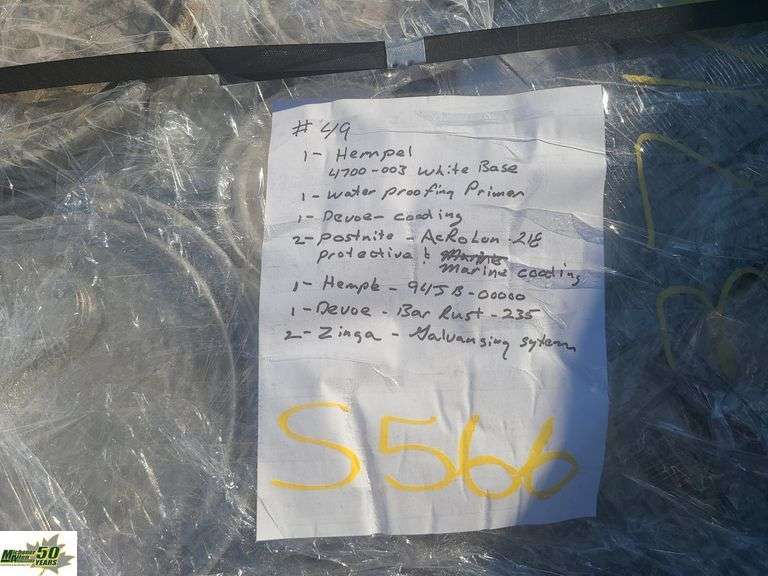 # 49
1- Hempel
4700-003 White Base
1- water proofing Primer
1- Devoe- coading
2- postnite - AcRoLon - 218
protective & Marine
marine coading
1- Hemple - 945 B - 00000
1- Devoe - Bar Rust - 235
2- Zinga - Galvansing sytem
S566
50
YEARS